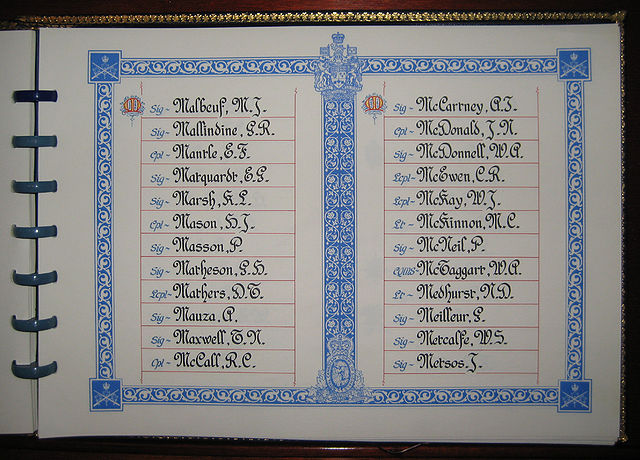 M
Sig ~ Malbeuf, M.J.
Sig ~ Mallindine, G.R.
Cpl ~ Mantle, E.F.
Sig ~ Marquardt, E.G.
Sig ~ Marsh, K.L.
Cpl ~ Mason, H.J.
Sig ~ Masson, P.
Sig ~ Matheson, G.H.
Lcpl ~ Mathers, D.T.
Sig ~ Mauza, A.
Sig ~ Maxwell, T.N.
Cpl ~ McCall, R.C.
M
Sig ~ McCartney, A.J.
Cpl ~ McDonald, J.N.
Sig ~ McDonnell, W.A.
Lcpl ~ McEwen, C.R.
Lcpl ~ McKay, W.J.
Lt ~ McKinnon, M.C.
Sig ~ McNeil, P.
CQMS ~ McTaggart, W.A.
Lt ~ Medhurst, N.D.
Sig ~ Meilleur, G.
Sig ~ Metcalfe, W.S.
Sig ~ Metsos, J.